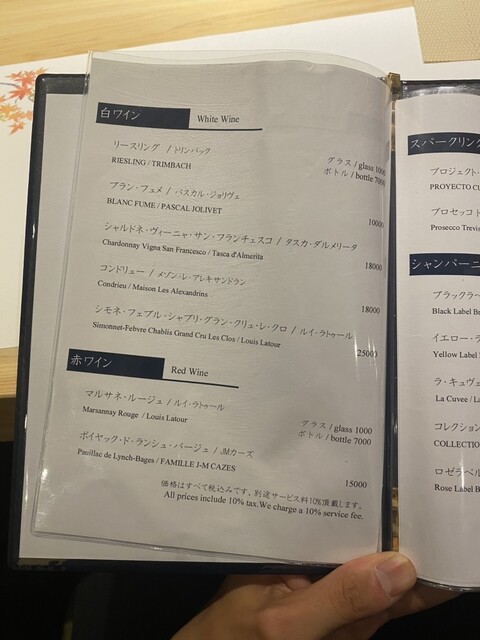 白ワイン White Wine
リースリング / トリンバック
RIESLING / TRIMBACH
グラス / glass 1000
ボトル / bottle 7000
ブラン・フュメ / パスカル・ジョリヴェ
BLANC FUME / PASCAL JOLIVET
10000
シャルドネ・ヴィーニャ・サン・フランチェスコ / タスカ・ダルメリータ
Chardonnay Vigna San Francesco / Tasca d'Almerita
18000
コンドリュー / メゾン・レ・アレキサンドラン
Condrieu / Maison Les Alexandrins
18000
シモネ・フェブル・シャブリ・グラン・クリュ・レ・クロ / ルイ・ラトゥール
Simonnet-Febvre Chablis Grand Cru Les Clos / Louis Latour
25000
赤ワイン Red Wine
マルサネ・ルージュ / ルイ・ラトゥール
Marsannay Rouge / Louis Latour
グラス / glass 1000
ボトル / bottle 7000
ポイヤック・ド・ランシュ・バージュ / JMカーズ
Pauillac de Lynch-Bages / FAMILLE J-M CAZES
15000
価格はすべて税込みです、別途サービス料10%頂戴します。
All prices include 10% tax.We charge a 10% service fee.
スパークリング
プロジェクト・
PROYECTO CU
プロセッコ
Prosecco Trevis
シャンパーニ
ブラックラベ
Black Label B
イエロー・ラ
Yellow Label
ラ・キュヴェ
La Cuvee / La
コレクション
COLLECTIO
ロゼラベル
Rose Label B